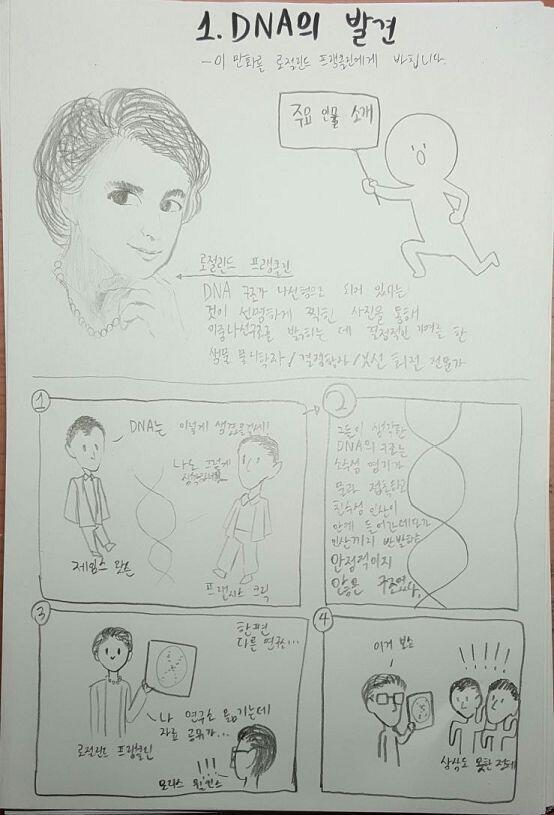 1. DNA의 발견
- 이 만화를 로절린드 프랭클린에게 바칩니다.
주요 인물 소개
로절린드 프랭클린
DNA 구조가 나선형으로 되어 있다는
것이 선명하게 찍힌 사진을 통해
이중나선구조를 밝히는 데 결정적인 기여를 한
생물 물리학자/결정학자/X선 회절 전문가
1
DNA는 이렇게 생겼을걸세!
나도 그렇게
생각한다네
제임스 왓슨
프랜시스 크릭
2
그들이 생각한
DNA의 구조는
소수성 염기가
물과 접촉하고
친수성 인산이
안에 들어간데다가
인산끼리 반발하는
안정적이지
않은 구조였다.
3
한편
다른 연구소...
나 연구소 옮기는데
자료 공유가...
로절린드 프랭클린
!!!
모리스 윌킨스
4
이거 보소
!!!!!!
상상도 못한 정체